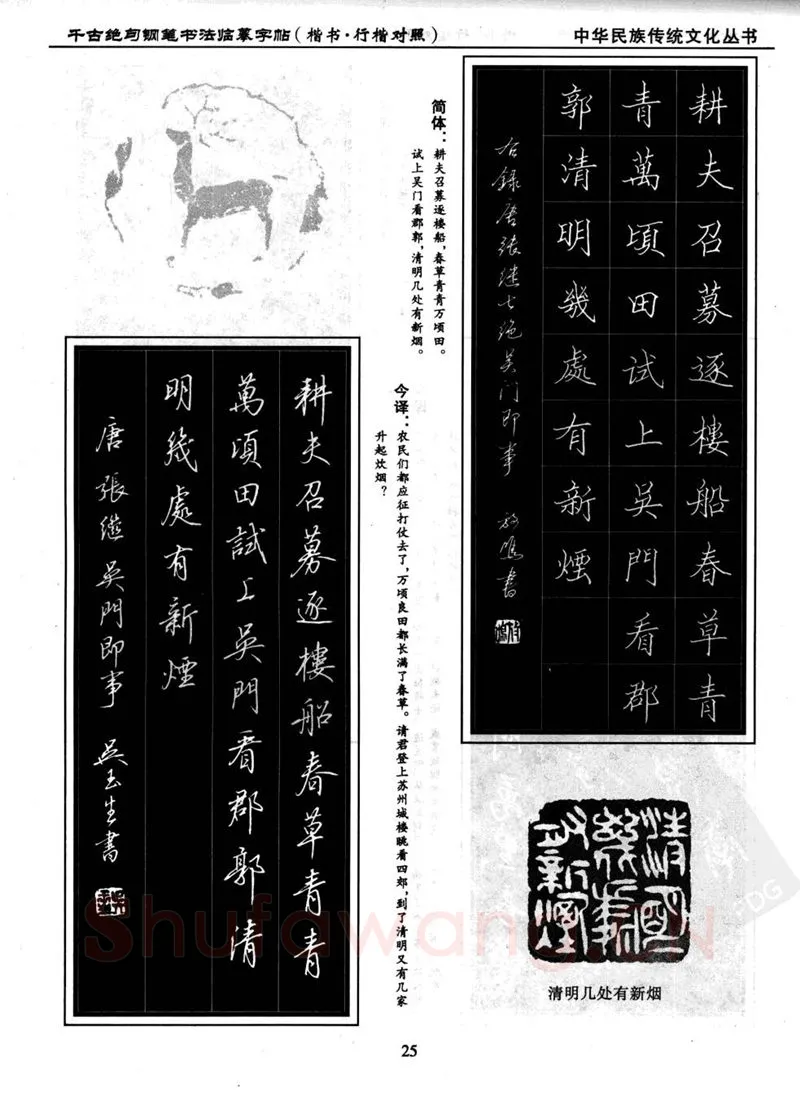 千古绝句钢笔书法临摹字帖(楷书·行楷对照)
中华民族传统文化丛书
耕夫召募逐樓船春草青
青萬頃田试上吳門看郡
郭清明幾處有新煙
右録唐張继七绝吴门即事
简体:耕夫召募逐楼船,春草青青万顷田。
试上吴门看郡郭,清明几处有新烟。
今译:农民们都应征打仗去了,万顷良田都长满了春草。请君登上苏州城楼眺看四郊,到了清明又有几家
升起炊烟?
耕夫召募逐樓船春草青青
萬頃田試上吳門看郡郭清
明幾處有新煙
唐張继吳門即事 吴玉生書
清明几处有新烟
清明几处有新烟
25
Shufawang.CN